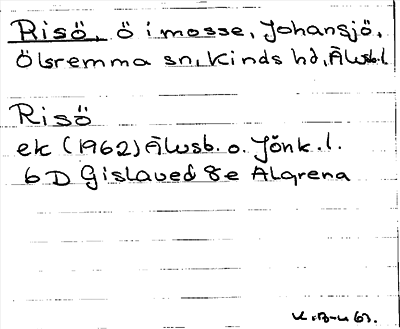 Risö, ö i mosse, Johansjö,
Ölsremma sn, Kinds hd, Älvsb.l
Risö
ek (1962) Älvsb. o. Jönk.l.
6D Gislaved 8e Algrena